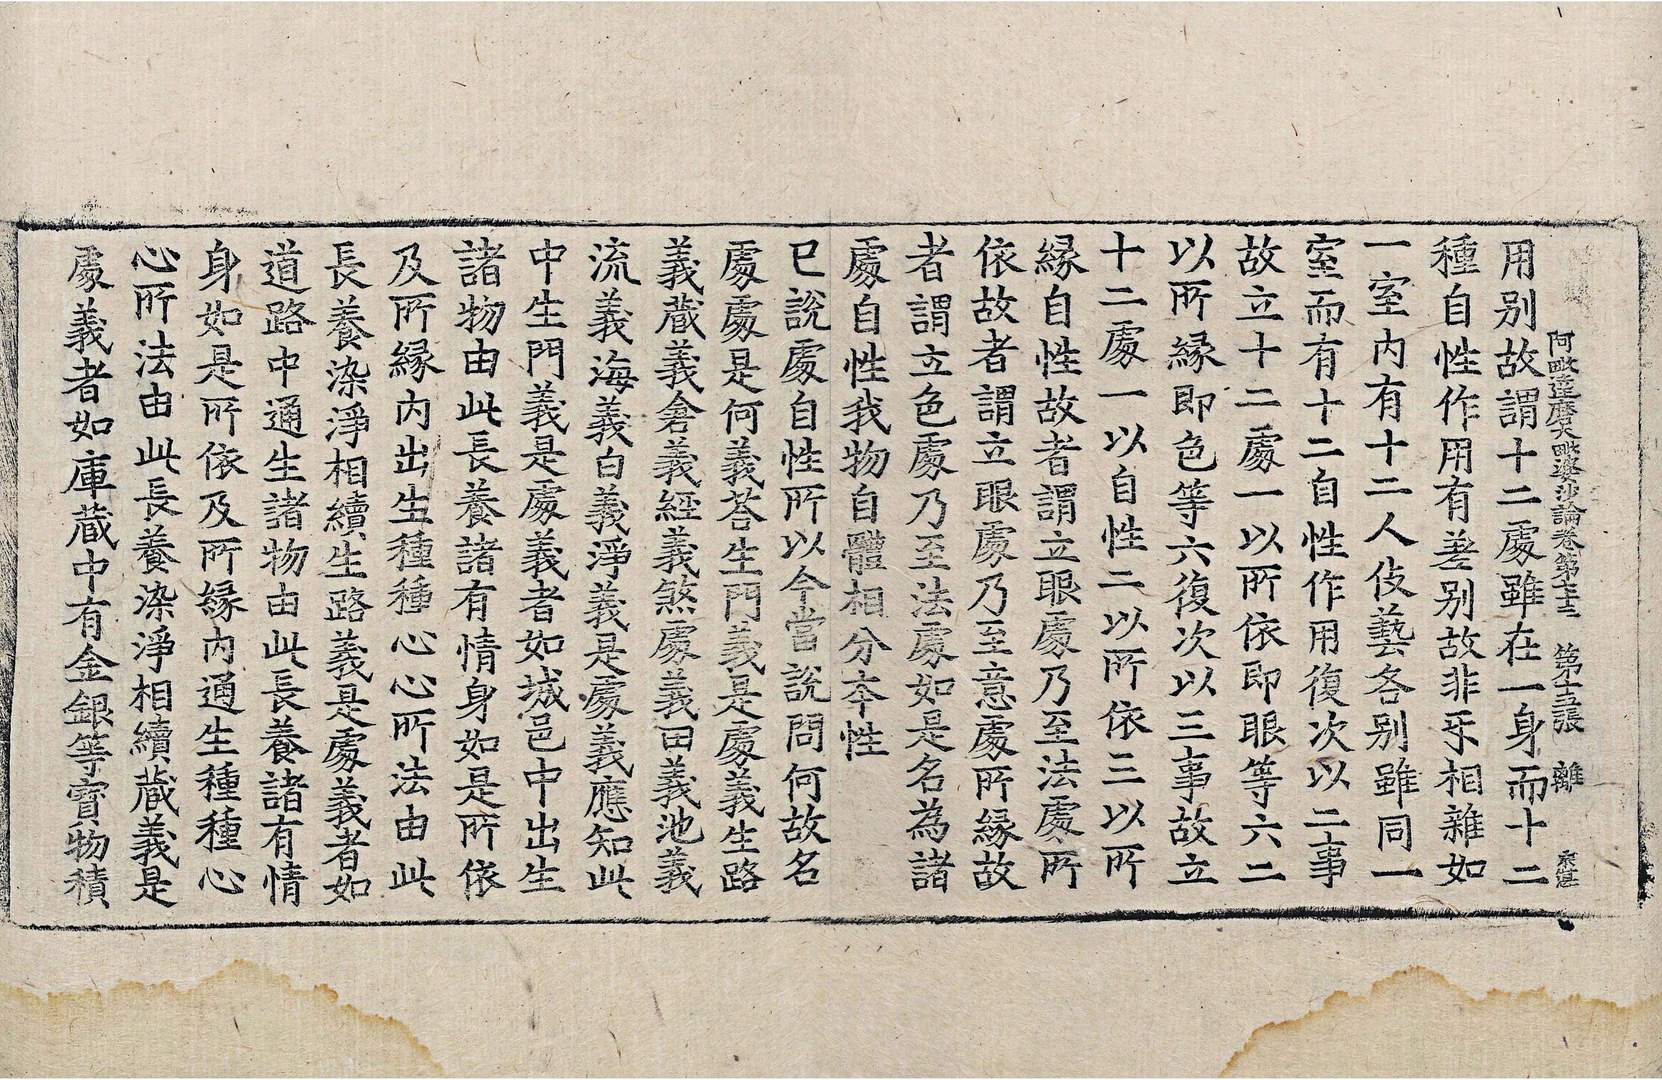 阿毗達磨大毗婆沙論卷第七十三　第十五張　離
用别故謂十二處雖在一身而十二
種自性作用有差别故非乐相雜如
一室内有十二人伎藝各别雖同一
室而有十二自性作用復次以二事
故立十二處一以所依即眼等六二
以所縁即色等六復次以三事故立
十二處一以自性二以所依三以所
縁自性故者謂立眼處乃至法處所
依故者謂立眼處乃至意處所縁故
者謂立色處乃至法處如是名為諸
處自性我物自體相分夲性
已說處自性所以今當說問何故名
處處是何義荅生門義是處義生路
義蔵義倉義經義煞處義田義池義
流義海義白義淨義是處義應知此
中生門義是處義者如城邑中出生
諸物由此長養諸有情身如是所依
及所縁内出生種種心心所法由此
長養染淨相續生路義是處義者如
道路中通生諸物由此長養諸有情
身如是所依及所縁内通生種種心
心所法由此長養染淨相續蔵義是
處義者如庫蔵中有金銀等寳物積